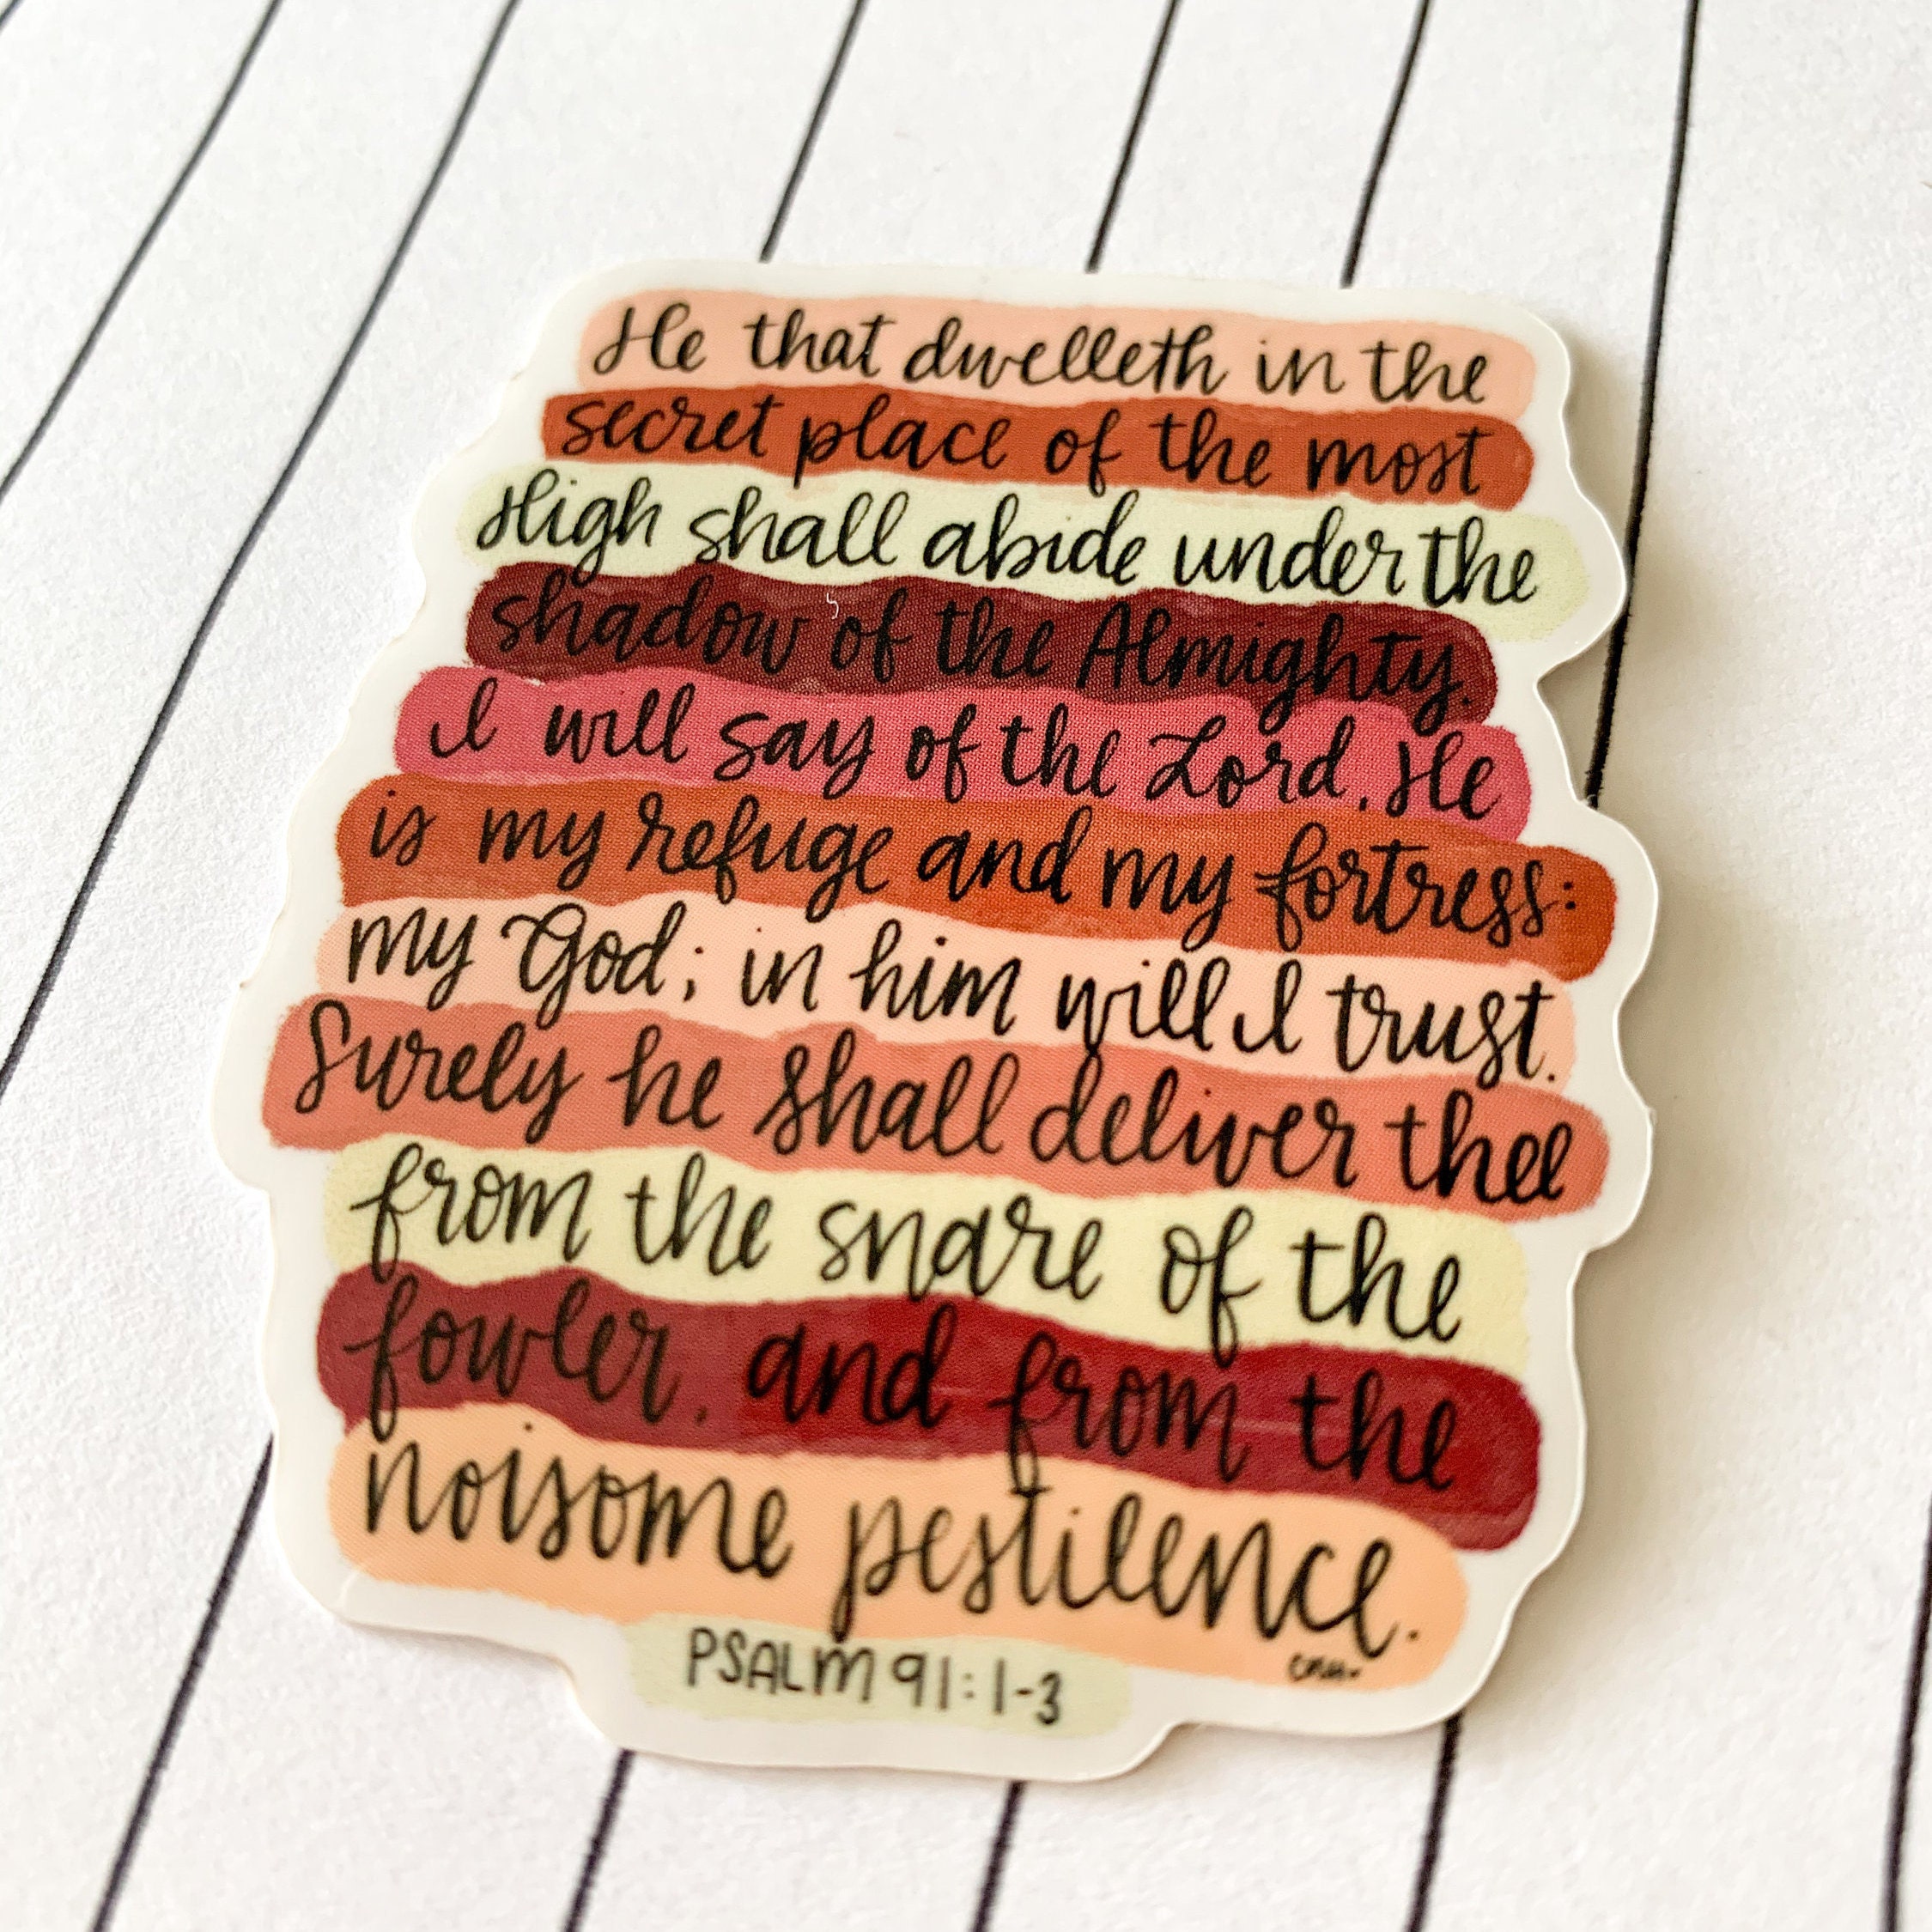 He that dwelleth in the
secret place of the most
High shall abide under the
shadow of the Almighty.
I will say of the Lord, He
is my refuge and my fortress:
my God; in him will I trust.
Surely he shall deliver thee
from the snare of the
fowler, and from the
noisome pestilence.
PSALM 91:1-3